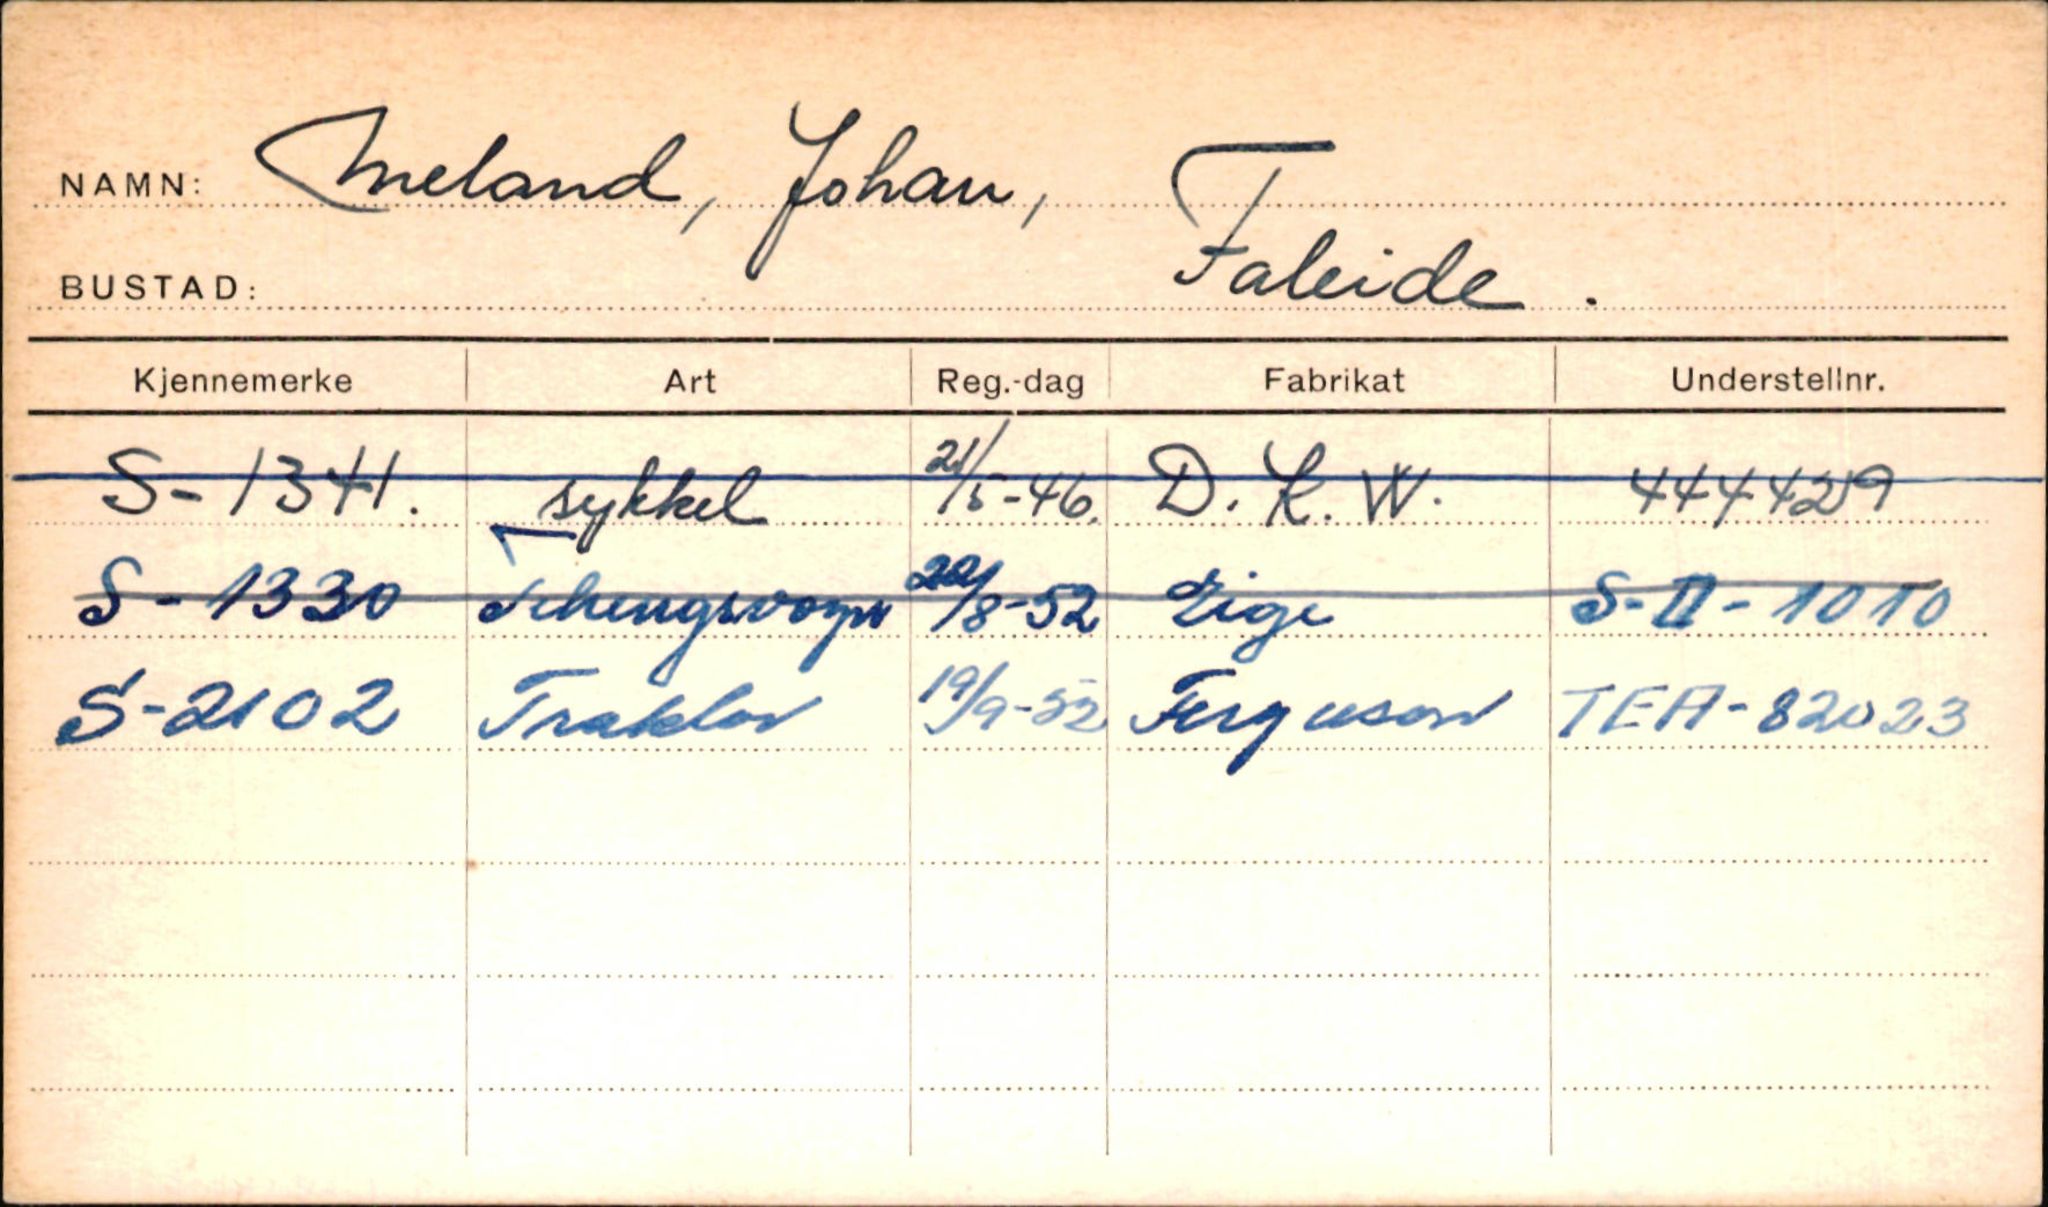 NAMN: Meland, Johan,
BUSTAD: Faleide.
Kjennemerke Art Reg.-dag Fabrikat Understellnr.
S-1341. sykkel 21/5-46. D.K.W. 444429
S-1330 Tilhengsvogn 22/8-52 Eige S-II-1010
S-2102 Traktor 19/9-52 Ferguson TEA-82023